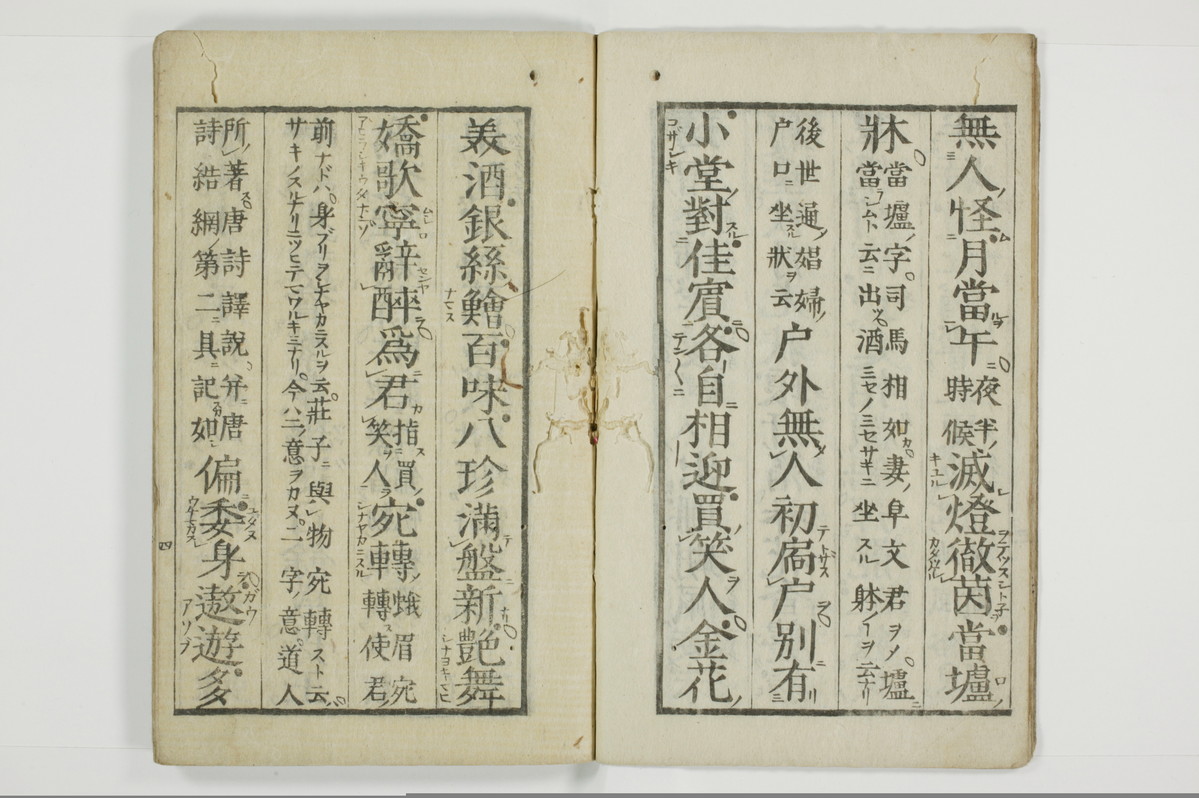 無人怪月當午夜半時候滅燈徹茵當壚
牀當壚ノ字司馬相如カ妻ノ卓文君ヲメ壚ニ
當ラシムト云ニ出ツ酒ミセノミセサキニ坐スル躰ノーヲ云ナリ
後世通娼婦ノ
戸口ニ坐スル狀ヲ云
戸外無人初扄戸別有
小堂對佳賓各自相迎買笑人金花
美酒銀絲鱠百味八珍滿盤新艶舞
嬌歌寧辭醉爲君指買笑人宛轉蛾眉宛
轉使君
前ナドハ身ブリヲシナヤカニスルヲ云莊子ニ與物宛轉スト云
サキノスルナリニツヒテマワルキミナリ今ハ二ノ意ヲカヌ二字ノ意道人
所著唐詩譯說并唐
詩結網第二ニ具ニ記如シ
偏委身遨遊多
四